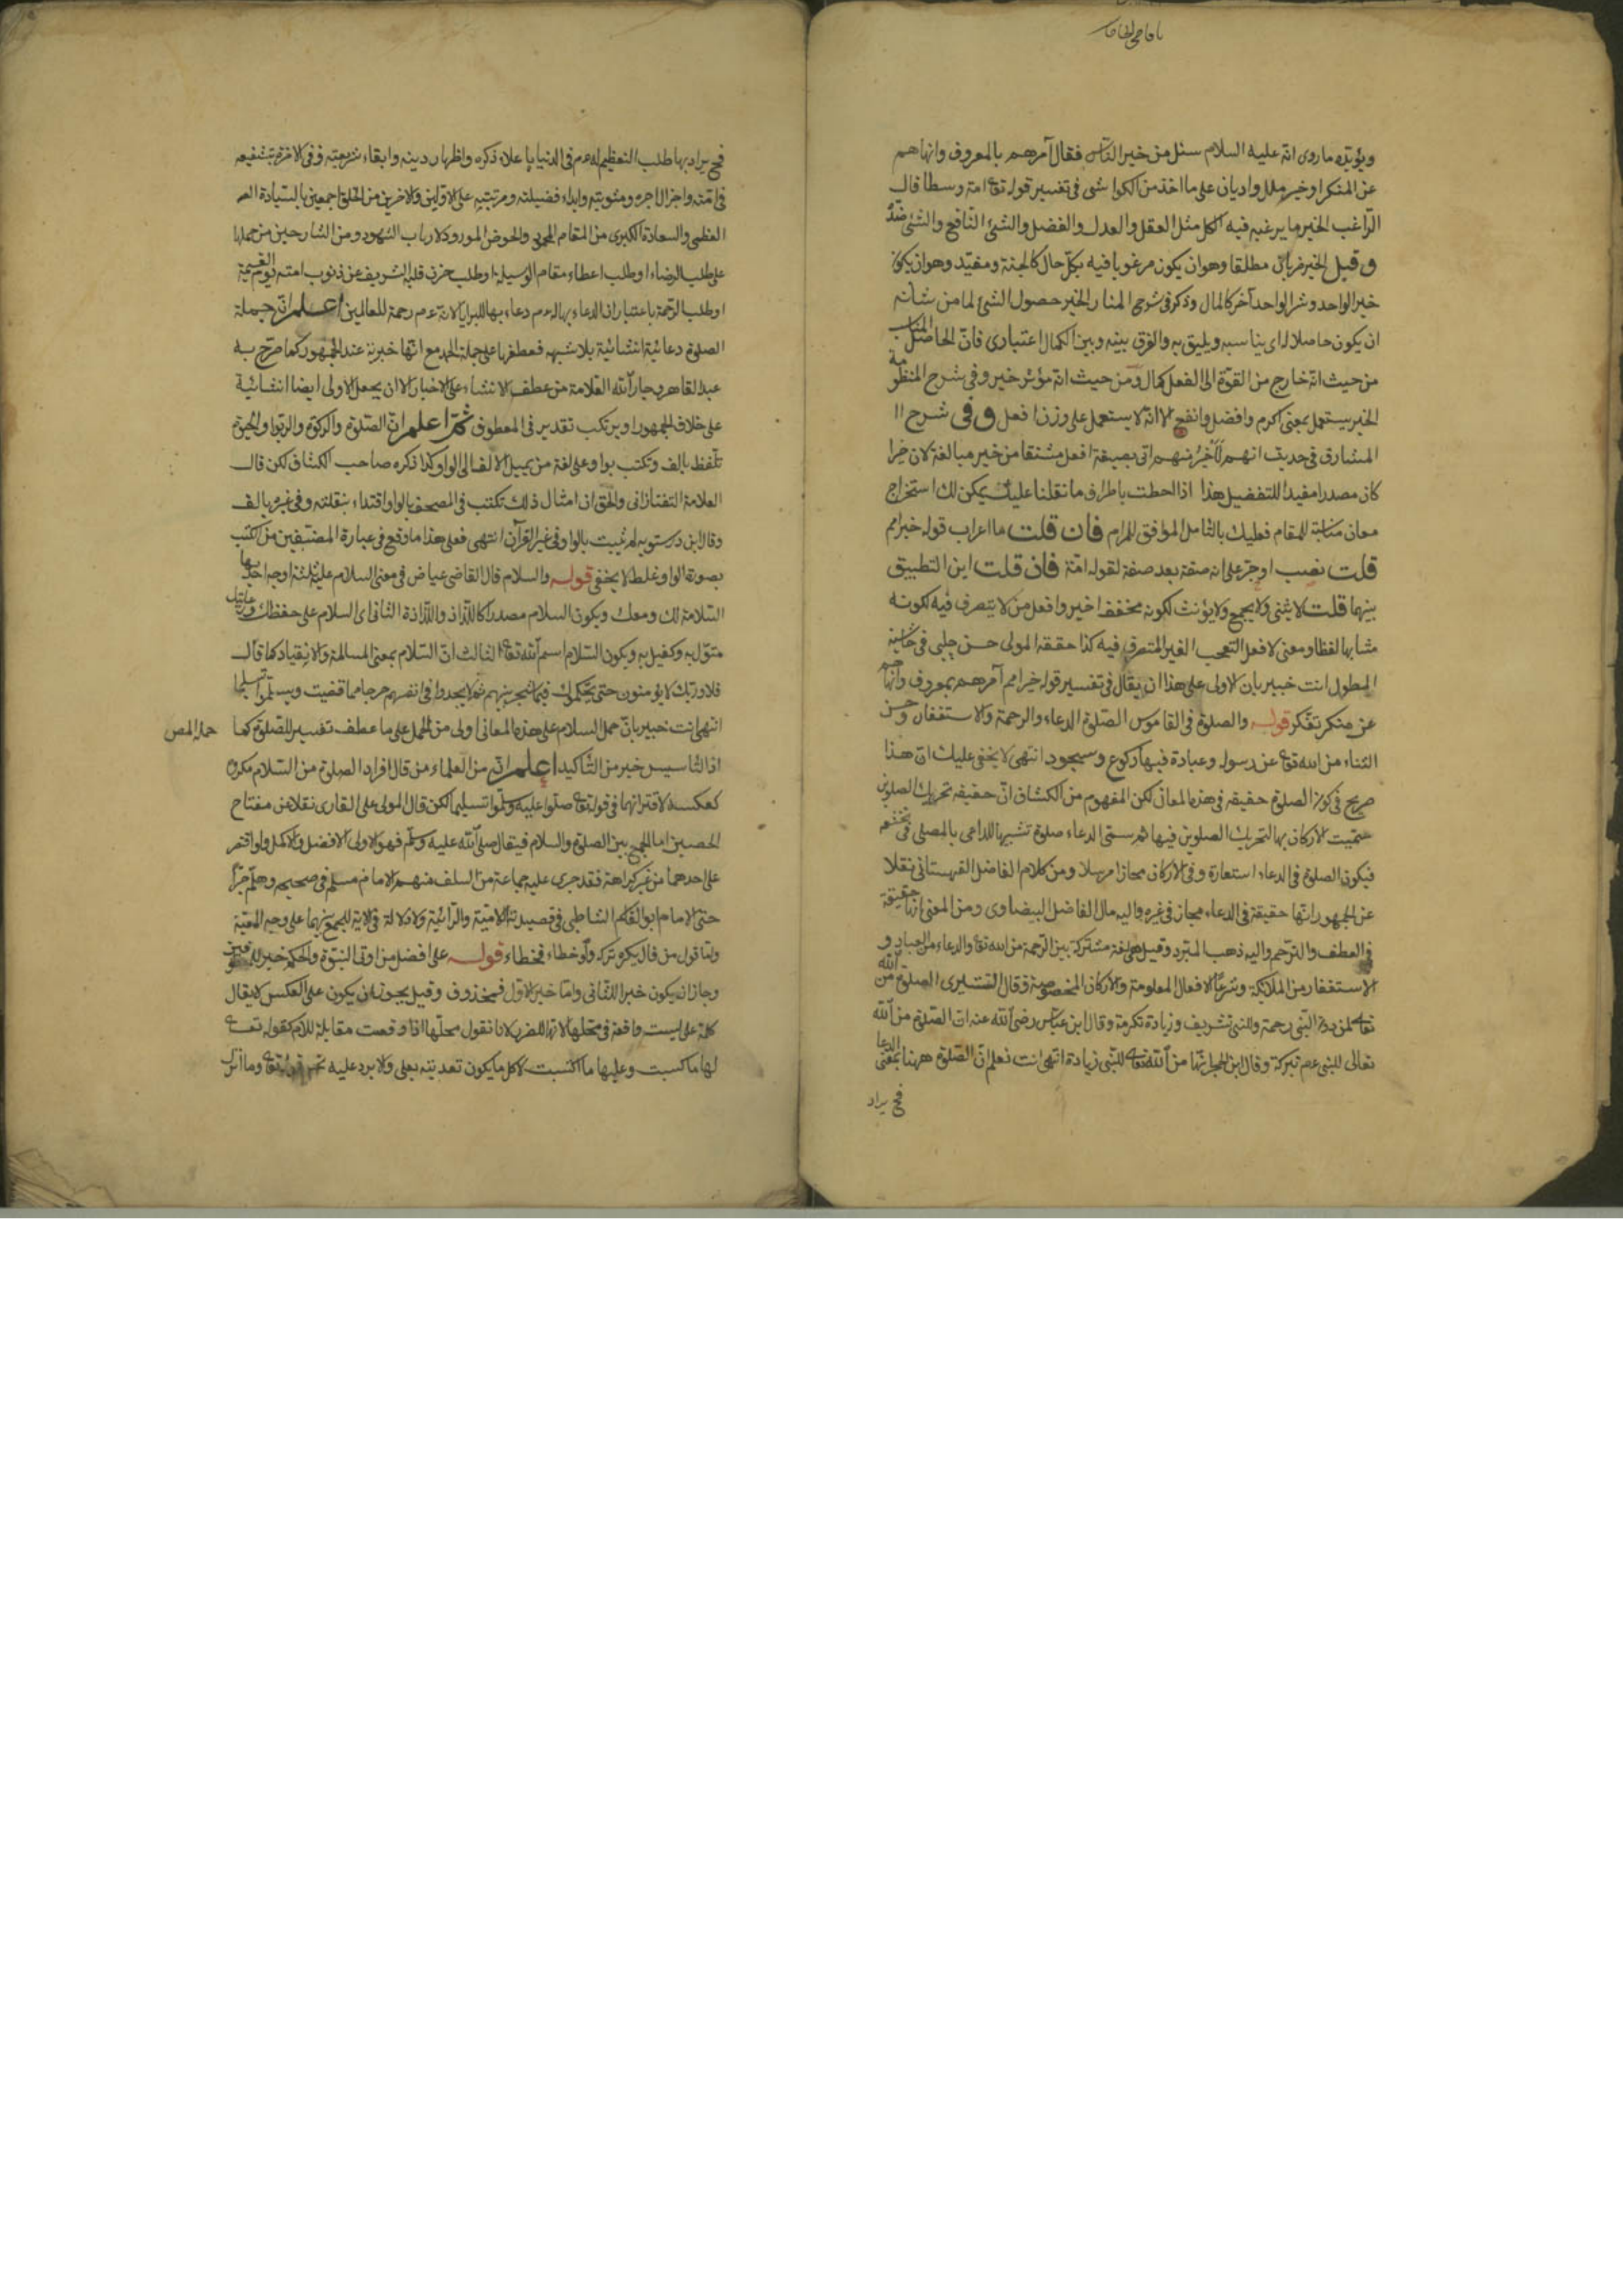 ويؤيده ما روى انه عليه السلام سئل من خير الناس فقال آمرهم بالمعروف وانهاهم
عن المنكر او خير ملل واديان على ما اخذ من الكواشى فى تفسير قوله تع امة وسطا قال
الراغب الخير ما يرغب فيه الكل مثل العقل والعدل والفضل والشئ النافع والشئ ضده
وقيل الخير ضربان مطلقا وهو ان يكون مرغوبا فيه بكل حال كالجنة ومقيد وهو ان يكون
خير الواحد وشر الواحد آخر كالمال وذكر فى شرح المنار الخير حصول الشئ لما من شانه
ان يكون حاصلا له اى يناسبه ويليق به والفرق بينه وبين الكمال اعتبارى فان الحاصل المناسب
من حيث انه خارج من القوة الى الفعل كمال ومن حيث انه مؤثر خير وفى شرح المنظومة
الخير يستعمل بمعنى اكرم وافضل وانفع الا انه لا يستعمل على وزن افعل وفى شرح ا
المشارق فى حديث انهم لأخير منهم اتى بصيغة افعل مشتقا من خير مبالغة لان خيرا
كان مصدرا مفيدا للتفضيل هذا اذا احطت باطراف ما نقلنا عليك يمكن لك استخراج
معان مناسبة للمقام فعليك بالتامل الموافق للمرام فان قلت ما اعراب قوله خير امم
قلت نصب او جر على انه صفة بعد صفة لقوله امة فان قلت اين التطبيق
بينها قلت لا يثنى ولا يجمع ولا يؤنث لكونه مخفف اخير وافعل من لا يتصرف فيه لكونه
مشابها لفظا ومعنى لافعل التعجب الغير المتصرف فيه كذا حققه المولى حسن چلبى فى حاشية
المطول انت خبير بان الاولى على هذا ان يقال فى تفسير قوله خير امم آمرهم بمعروف وانهاهم
عن منكر تفكر قوله والصلوة فى القاموس الصلوة الدعاء والرحمة والاستغفار وحسن
الثناء من الله تع عن رسوله وعبادة فيها ركوع وسجود انتهى لا يخفى عليك ان هذا
صريح فى كون الصلوة حقيقة فى هذه المعانى لكن المفهوم من الكشاف ان حقيقة تحريك الصلوين
سميت الاركان بها لتحريك الصلوين فيها ثم سمى الدعاء صلوة تشبيها للداعى بالمصلى فى تخشعه
فيكون الصلوة فى الدعاء استعارة وفى الاركان مجازا مرسلا ومن كلام الفاضل القهستانى نقلا
عن الجمهور انها حقيقة فى الدعاء مجاز فى غيره واليه مال الفاضل البيضاوى ومن المعنى انها حقيقة
فى العطف والترحم واليه ذهب المبرد وقيل هى لغة مشتركة بين الرحمة من الله تع والدعاء من العباد و
الاستغفار من الملائكة وشرعا الافعال المعلومة والاركان المخصوصة وقال القشيرى الصلوة من الله
تعالى لمن دون النبى رحمة وللنبى تشريف وزيادة تكرمة وقال ابن عباس رضى الله عنه ان الصلوة من الله
تعالى للنبى عم تبركة وقال ابن الحجر انها من الله تعالى للنبى زيادة انتهى انت تعلم ان الصلوة ههنا بمعنى الدعا
فح يراد
فح يراد بها طلب التعظيم له عم فى الدنيا باعلاء ذكره واظهار دينه وابقاء شريعته وفى الآخرة بتشفيعه
فى امته واجزال اجره ومثوبته وابداء فضيلته ومرتبته على الاولين والاخرين من الخلق اجمعين بالسيادة
العظمى والسعادة الكبرى من المقام المحمود والحوض المورود لارباب الشهود ومن الشارحين من حملها
على طلب الرضاء او طلب اعطاء مقام الوسيلة او طلب حزن قلبه الشريف عن ذنوب امته يوم القيمة
او طلب الرحمة باعتبار ان الدعاء بها له عم دعاء بها للبرايا لانه عم رحمة للعالمين اعلم ان جملة
الصلوة دعائية انشائية بلا شبهة فعطفها على جملة الحمد مع انها خبرية عند الجمهور كما صرح به
عبد القاهر وجار الله العلامة من عطف الانشاء على الاخبار الا ان يجعل الاولى ايضا انشائية
على خلاف الجمهور او يرتكب تقدير فى المعطوف ثم اعلم ان الصلوة والزكوة والربوا والحيوة
تلفظ بالف وتكتب بواو على لغة من يميل الالف الى الواو كذا ذكره صاحب الكشاف لكن قال
العلامة التفتازانى والحق ان امثال ذلك تكتب فى المصحف بالواو اقتداء بنقلته وفى غيره بالف
وقال ابن درستويه لم تثبت بالواو فى غير القرآن انتهى فعلى هذا ما وقع فى عبارة المصنفين من الكتب
بصورة الواو غلط لا يخفى قوله والسلام قال القاضى عياض فى معنى السلام عليه ثلثة اوجه احدها
السلامة لك ومعك ويكون السلام مصدرا كاللذاذ واللذاذة الثانى اى السلام على حفظك ورعايتك
متول به وكفيل به ويكون السلام اسم الله تعالى الثالث ان السلام بمعنى المسالمة والانقياد كما قال
فلا وربك لا يؤمنون حتى يحكموك فيما شجر بينهم ثم لا يجدوا فى انفسهم حرجا مما قضيت ويسلموا تسليما
انتهى انت خبير بان حمل السلام على هذه المعانى اولى من الحمل على ما عطف تفسير للصلوة كما
حمله المص
اذ التاسيس خير من التاكيد اعلم ان من العلماء من قال افراد الصلوة من السلام مكروه
كعكسه لاقترانهما فى قوله تع صلوا عليه وسلموا تسليما لكن قال المولى على القارى نقلا عن مفتاح
الحصين اما الجمع بين الصلوة والسلام فيقال صلى الله عليه وسلم فهو الاولى الافضل والاكمل ولو اقتصر
على احدهما من غير كراهة فقد جرى عليه جماعة من السلف منهم الامام مسلم فى صحيحه وهلم جرا
حتى الامام ابو القاسم الشاطبى فى قصيدته اللامية والرائية ولا دلالة فى الآية للجمع بينهما على وجه المعية
واما قول من قال يكره تركه ولو خطاء فخطاء قوله على افضل من اوتى النبوة والحكم خبر للمعنيين
وجاز ان يكون خبرا للثانى واما خبر الاول فمحذوف وقيل يجوز ان يكون على العكس لا يقال
كلمة على ليست واقعة فى محلها لانها للضرر لانا نقول محلها اذا وقعت مقابلة للام كقوله تعالى
لها ما كسبت وعليها ما اكتسبت لا كل ما يكون تعديته بعلى ولا يرد عليه وما انزل